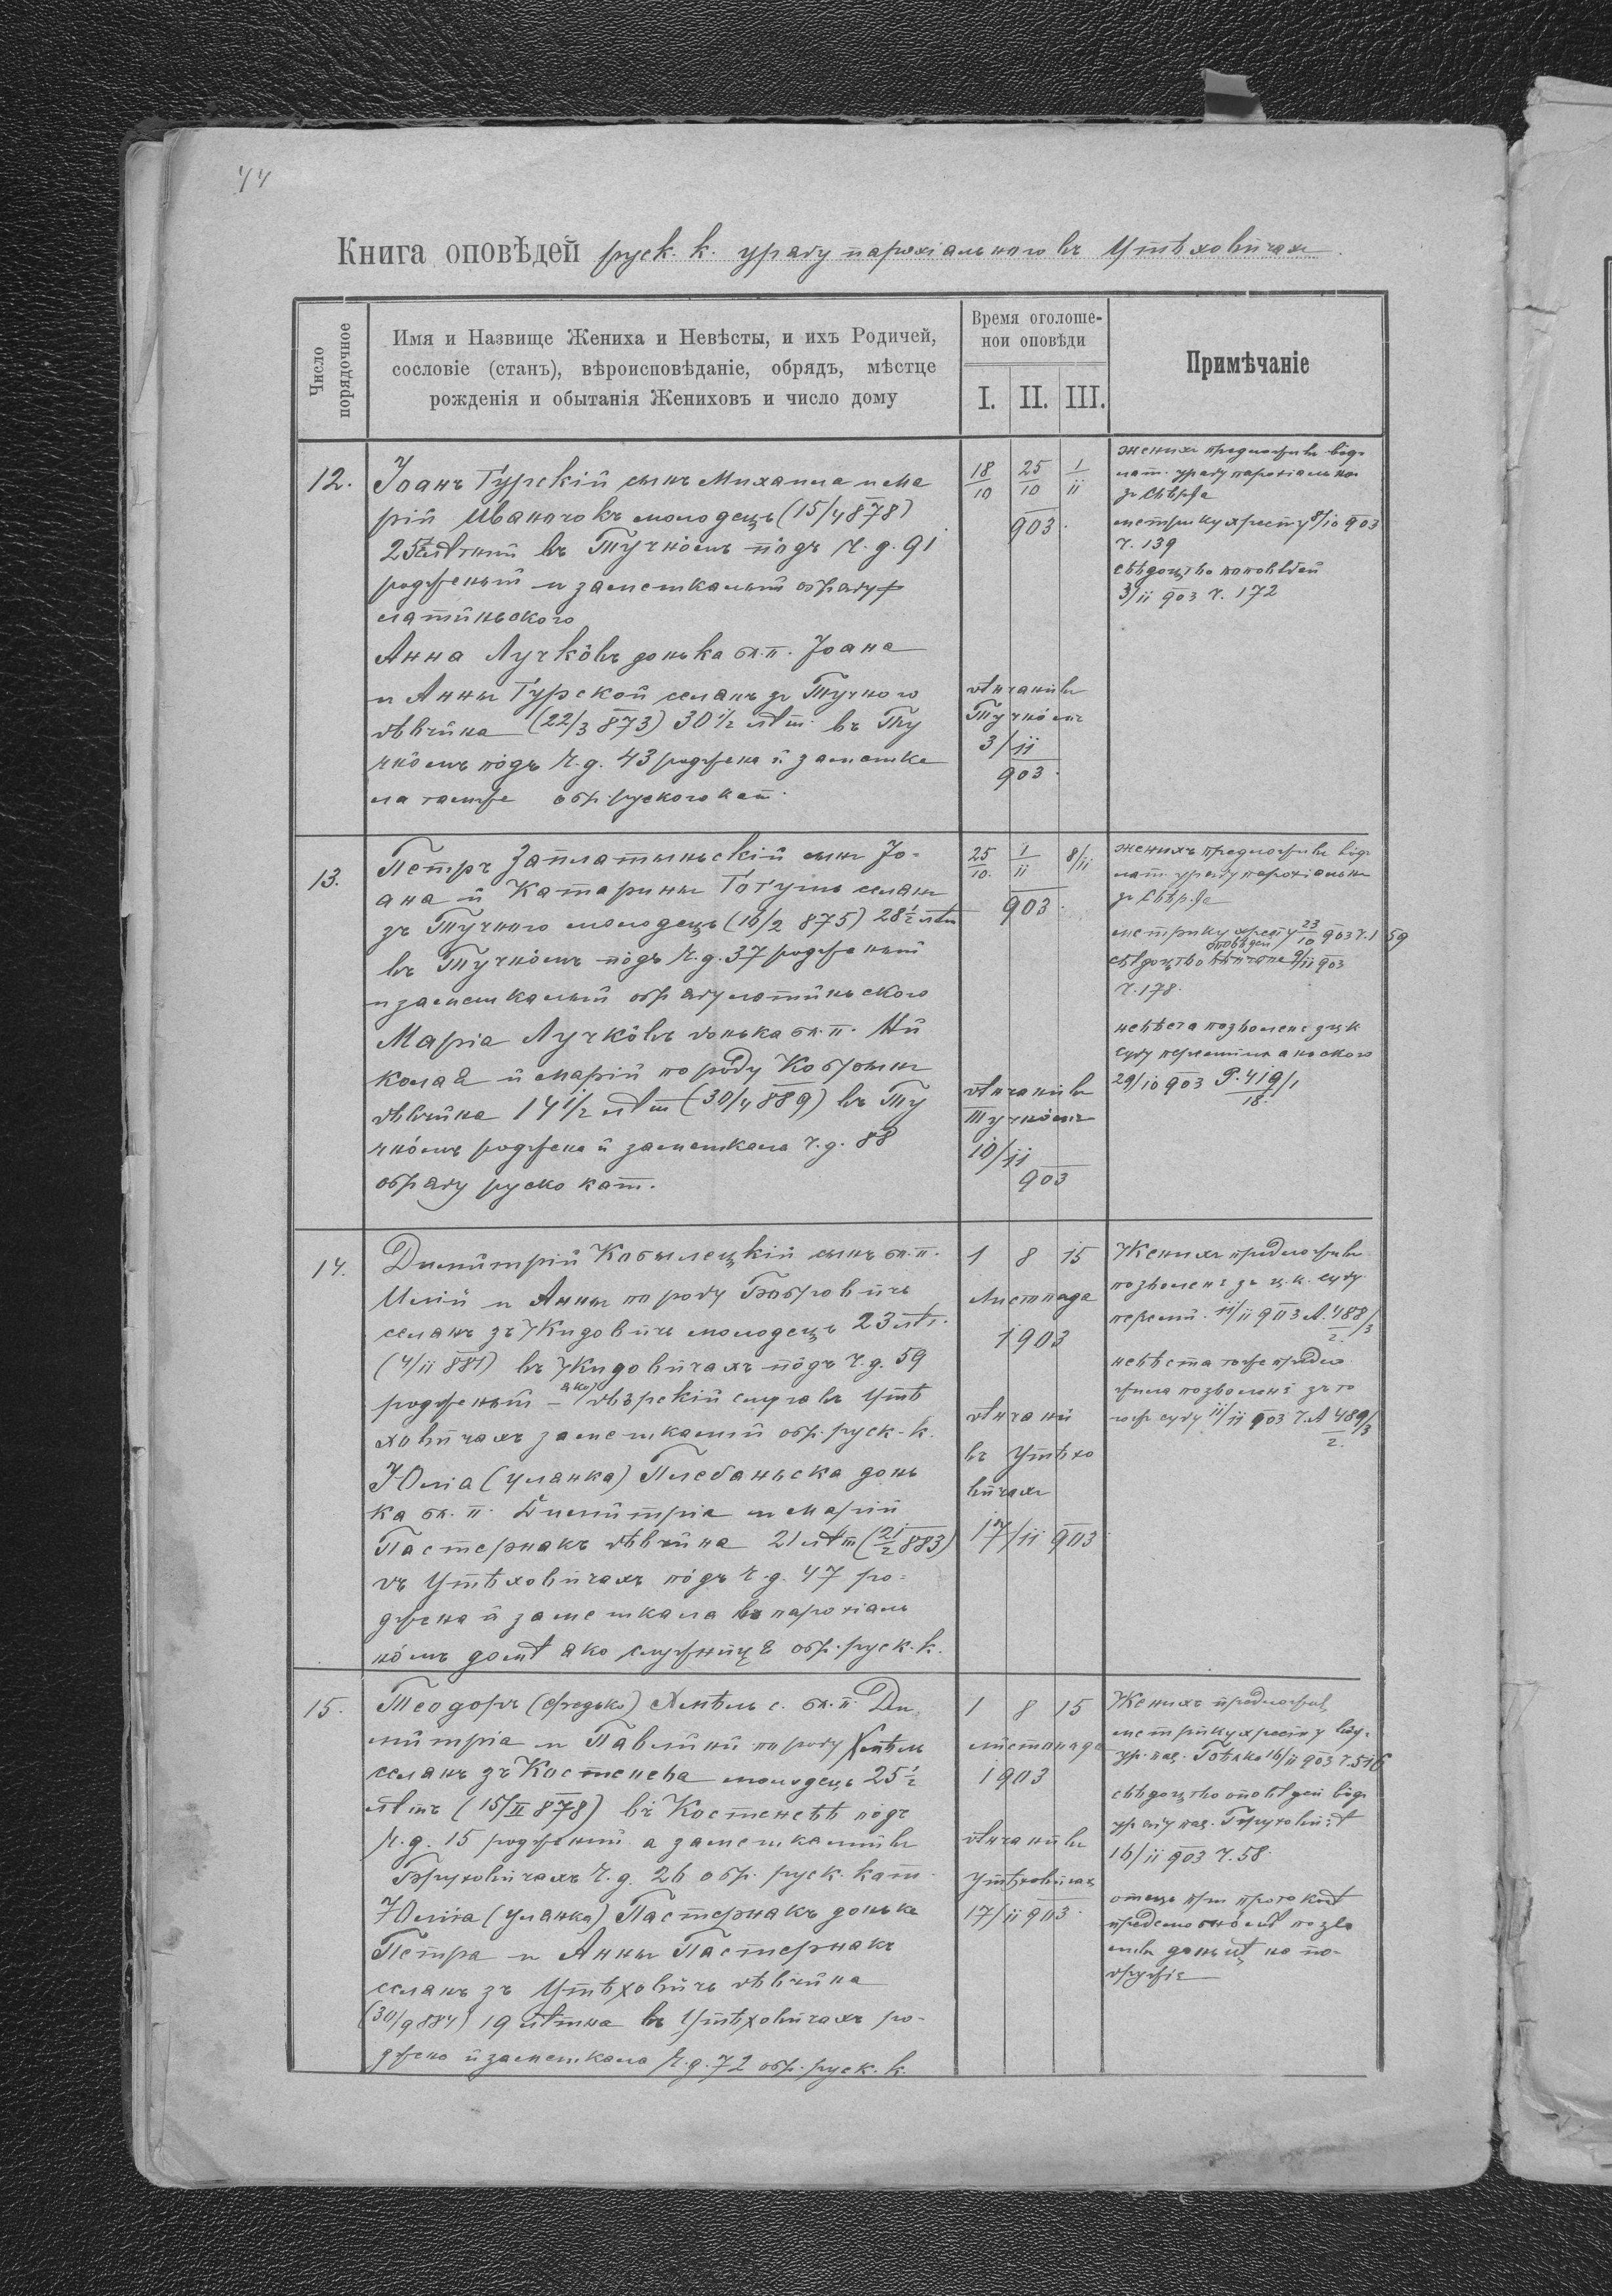 44
Книга оповѣдей руск. к. уряду парохіального въ Утѣховичах
Число порядочное
Имя и Назвище Жениха и Невѣсты, и ихъ Родичей,
сословіе (станъ), вѣроисповѣданіе, обрядъ, мѣстце
рожденія и обытанія Жениховъ и число дому
Время оголоше-
нои оповѣди
I. II. III.
Примѣчаніе
12.
Іоанъ Гурскій сынъ Михаила и Ма
рій Иваночокъ молодець (15/4 878)
25 лѣтний въ Тучномъ пôдъ ч. д. 91
родженый и замешкалый обряду
латиньского
Анна Лучкôвъ донька бл. п. Іоана
и Анны Гурской селянъ зъ Тучного
дѣвчина (22/3 873) 30 1/2 лѣт. въ Ту
чнôмъ пôдъ ч. д. 43 роджена й замешка
ла тамже обр. руского кат.
18/10 25/10 1/11
903.
вѣнчаний въ
Тучнôмъ
3/11
903.
жених предложивъ вôдъ
лат. уряду парохіально
зъ Свѣржа
метрику хресту 8/10 903
ч. 139
свѣдоцтво оповѣдей
3/11 903 ч. 172
13.
Петръ Заплатыньскій сынъ Іо-
ана й Катарины Гогуль селянъ
зъ Тучного молодець (16/2 875) 28 1/2 лѣт
въ Тучнôмъ пôдъ ч. д. 37 родженый
и замешкалый обряду латиньского
Марія Лучкôвъ донька бл. п. Ни
колая й Марій по роду Кобрынъ
дѣвчина 14 1/2 лѣт (30/4 889) въ Ту
чнôмъ роджена й замешкала ч. д. 88
обряду руско кат.
25/10. 1/11 8/11
903.
вѣнчаний въ
Тучнôмъ
10/11
903
женихъ предложивъ вôдъ
лат. уряду парохіальн
зъ Свѣржа
метрику хресту 23/10 903 ч. 159
оповѣдей
свѣдоцтво 9/11 903
ч. 178.
невѣста позволенє з ц. к.
суду перемишляньского
29/10 903 P. 419/1
18.
14.
Димитрій Кобылецкій сынъ бл. п.
Илій и Анны по роду Бобровичъ
селянъ зъ Жидовичъ молодець 23 лѣт.
(4/11 881) въ Жидовичахъ пôдъ ч. д. 59
родженый – яко двôрскій слуга въ Утѣ
ховичахъ замешкалый обр. руск. к.
Юлія (Улянка) Плебаньска донь
ка бл. п. Димитрія и Марій
Пастернакъ дѣвчина 21 лѣт (21/2 883)
въ Утѣховичахъ пôдъ ч. д. 47 ро-
джена й замешкала въ парохіаль
нôмъ домѣ яко служниця обр. руск. к.
1 8 15
Листопада
1903
вѣнчаний
въ Утѣхо
вичахъ
17/11 903
Женихъ предложивъ
позволенє зъ ц. к. суду
перемиш. 11/11 903 А. 488/3
2.
невѣста тоже предло
жила позволенє зъ то
гож суду 11/11 903 ч. А 489/3
2.
15.
Теодоръ (Федько) Хмѣль с. бл. п. Ди
митрія и Павлини по роду Хмѣль
селянъ зъ Костенева молодець 25 1/2
лѣтъ (15/II 878) въ Костеневѣ пôдъ
ч. д. 15 родженый а замешкалий въ
Брюховичахъ ч. д. 26 обр. руск. кат.
Юлія (Улянка) Пастернакъ донька
Петра и Анны Пастернакъ
селянъ зъ Утѣховичъ дѣвчина
(30/9 884) 19 лѣтна въ Утѣховичахъ ро-
джена й замешкала ч. д. 72 обр. руск. к.
1 8 15
листопада
1903
вѣнчаний въ
Утѣховичах
17/11 903.
Женихъ предложив
метрику хресту вôд
ур. пар. 16/11 903 ч. 516
свѣдоцтво оповѣдей вôдъ
уряду пар. Брюховичѣ
16/11 903 ч. 58.
отець при протоколѣ
позво
ливъ доньцѣ на по-
дружіє